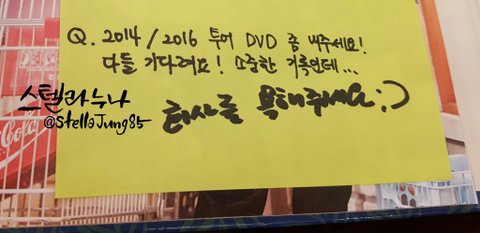 Q. 2014 / 2016 투어 DVD 좀 내주세요!
다들 기다려요! 소중한 기록인데...
회사를 욕해주세요 ;)
스텔라누나
@StellaJung85
Coca